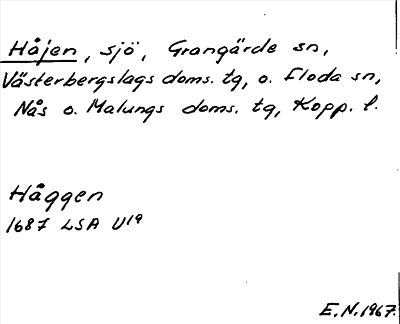 Håjen, sjö, Grangärde sn,
Västerbergslags doms. tg, o. Floda sn,
Nås o. Malungs doms. tg, Kopp. l.
Håggen
1687 LSA U19
E.N. 1967.